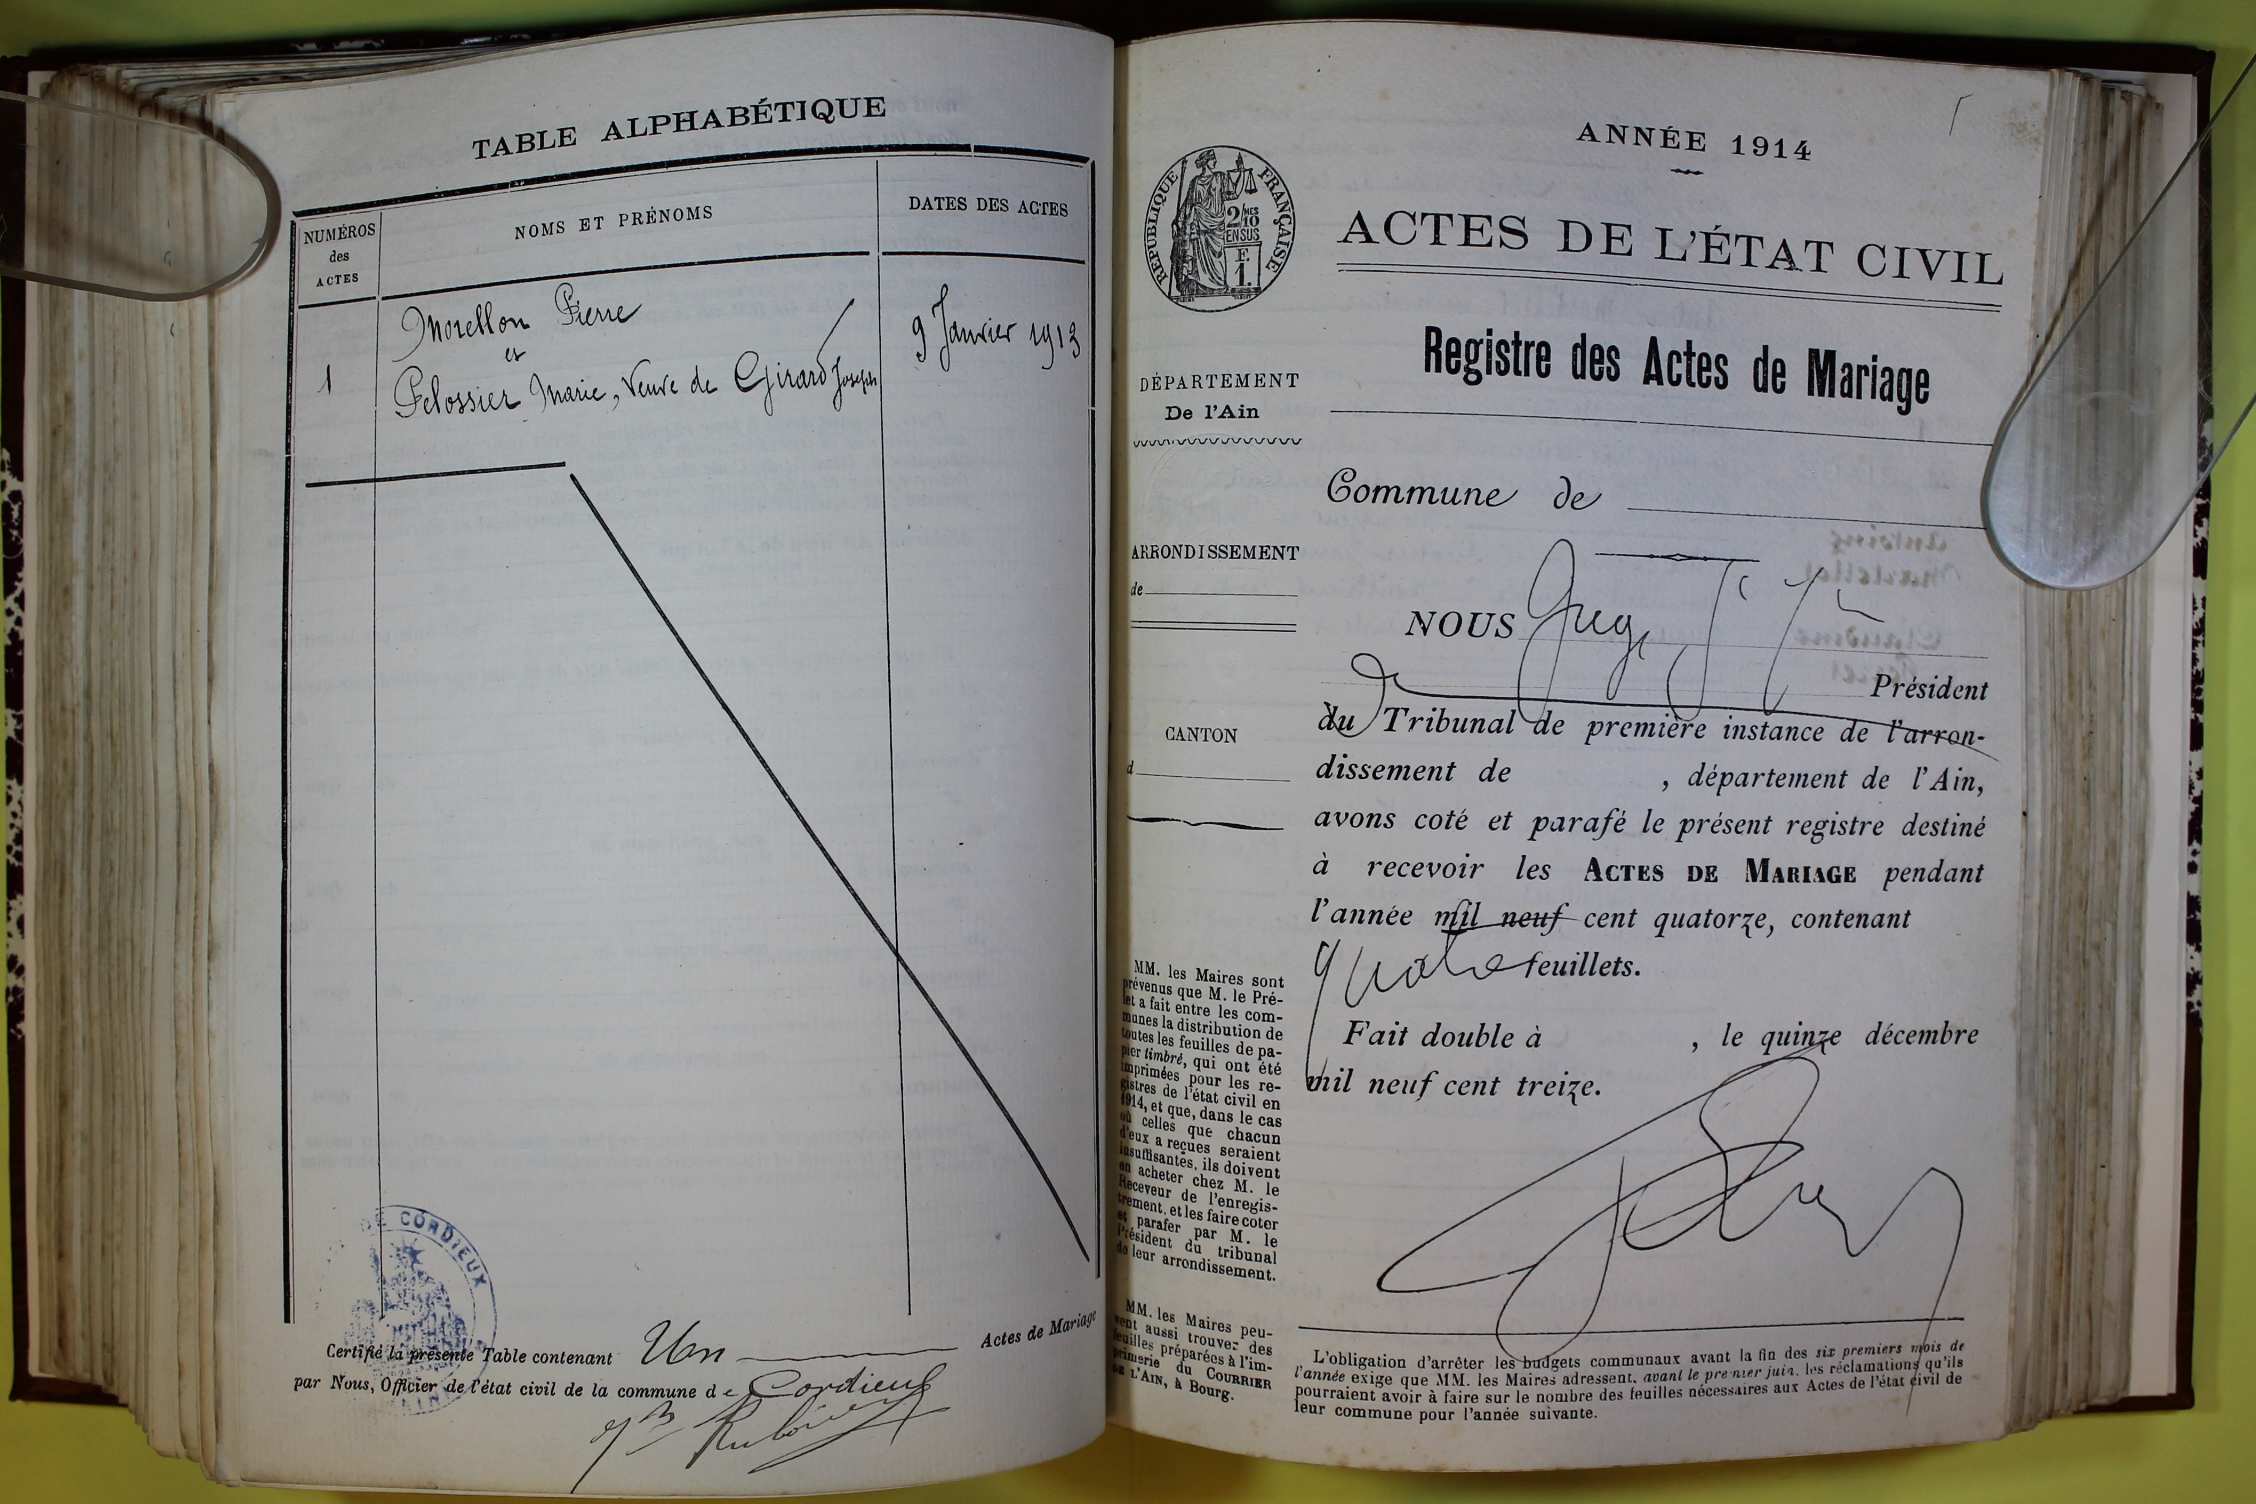 TABLE ALPHABÉTIQUE
NUMÉROS
des
ACTES
NOMS ET PRÉNOMS
DATES DES ACTES
1
Morellon Pierre
et
Pelossier Marie, Veuve de Girard Joseph
9 Janvier 1913
DE CORDIEUX
AIN
Certifié la présente Table contenant Un Actes de Mariage
par Nous, Officier de l'état civil de la commune de Cordieux
ANNÉE 1914
RÉPUBLIQUE FRANÇAISE
2/10 MES
EN SUS
F.
1.
ACTES DE L'ÉTAT CIVIL
Registre des Actes de Mariage
DÉPARTEMENT
De l'Ain
Commune de
ARRONDISSEMENT
de
CANTON
d
NOUS
Président
du Tribunal de première instance de l'arron-
dissement de , département de l'Ain,
avons coté et parafé le présent registre destiné
à recevoir les ACTES DE MARIAGE pendant
l'année mil neuf cent quatorze, contenant
quatre feuillets.
Fait double à , le quinze décembre
mil neuf cent treize.
MM. les Maires sont
prévenus que M. le Pré-
fet a fait entre les com-
munes la distribution de
toutes les feuilles de pa-
pier timbré, qui ont été
imprimées pour les re-
gistres de l'état civil en
1914, et que, dans le cas
où celles que chacun
d'eux a reçues seraient
insuffisantes, ils doivent
en acheter chez M. le
Receveur de l'enregis-
trement, et les faire coter
et parafer par M. le
Président du tribunal
de leur arrondissement.
MM. les Maires peu-
vent aussi trouver des
feuilles préparées à l'im-
primerie du COURRIER
DE L'AIN, à Bourg.
L'obligation d'arrêter les budgets communaux avant la fin des six premiers mois de
l'année exige que MM. les Maires adressent, avant le premier juin, les réclamations qu'ils
pourraient avoir à faire sur le nombre des feuilles nécessaires aux Actes de l'état civil de
leur commune pour l'année suivante.